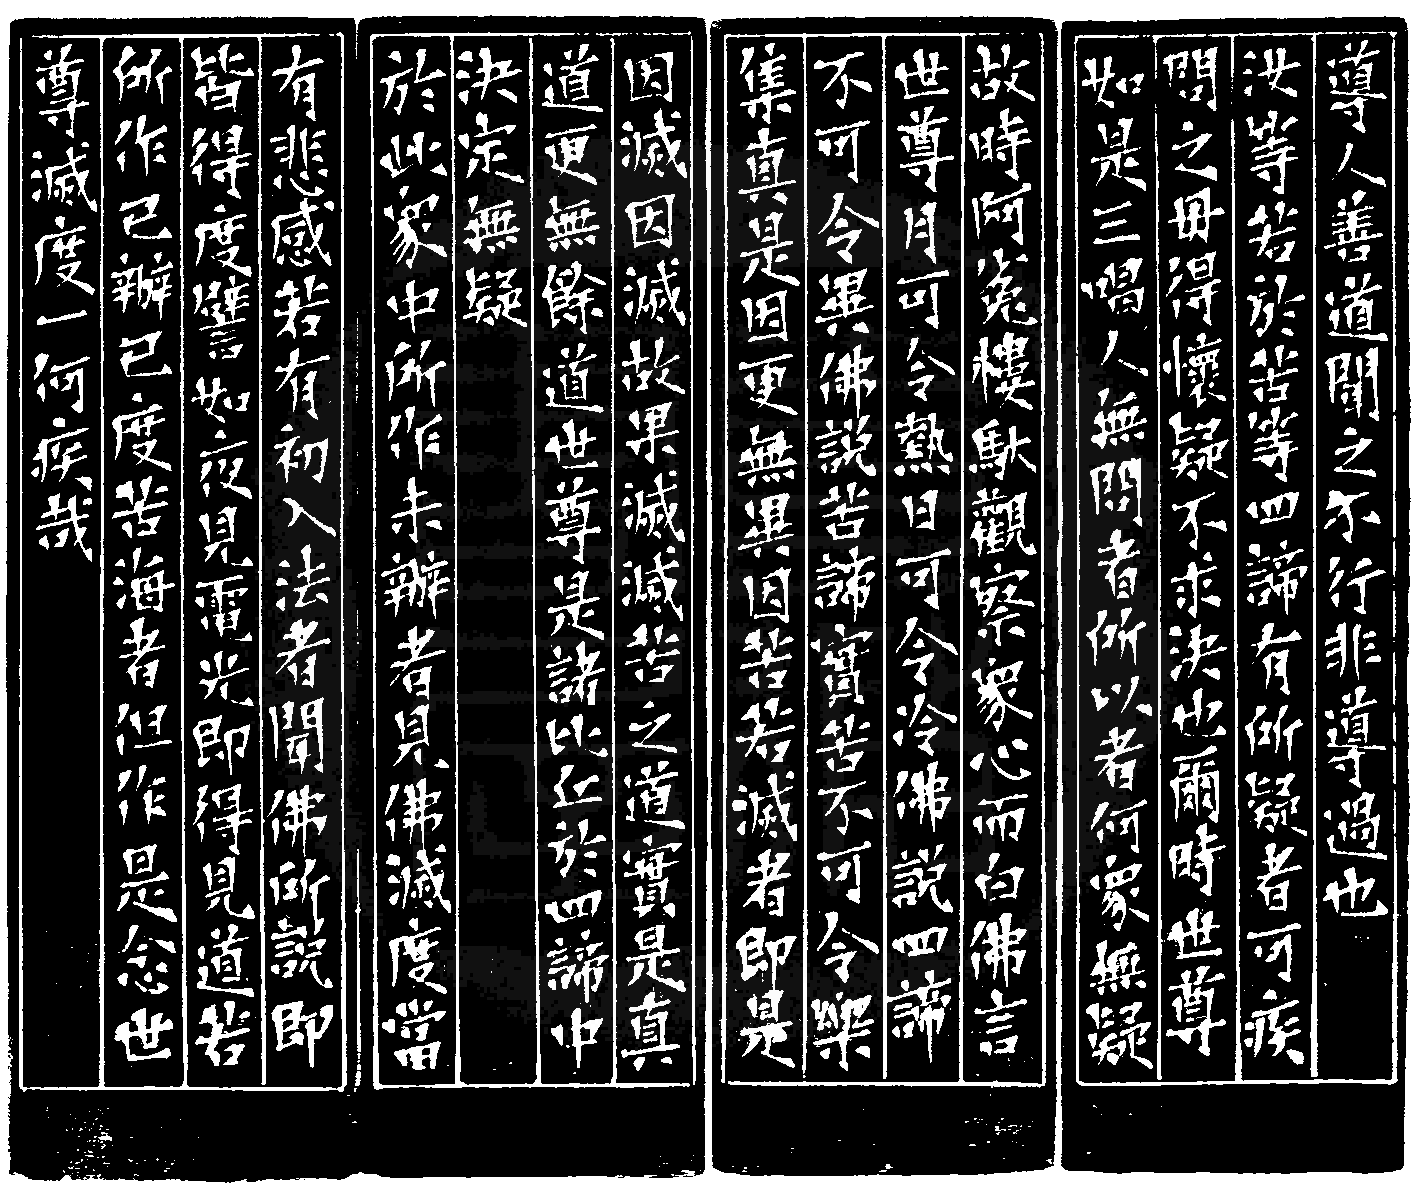 導人善道聞之不行非導過也
汝等若於苦等四諦有所疑者可疾
問之毋得懷疑不求決也爾時世尊
如是三唱人無問者所以者何眾無疑
故時阿㝹樓馱觀察眾心而白佛言
世尊月可令熱日可令冷佛説四諦
不可令異佛説苦諦實苦不可令樂
集真是因更無異因苦若滅者即是
因滅因滅故果滅滅苦之道實是真
道更無餘道世尊是諸比丘於四諦中
決定無疑
於此眾中所作未辦者見佛滅度當
有悲感若有初入法者聞佛所説即
皆得度譬如夜見電光即得見道若
所作已辦已度苦海者但作是念世
尊滅度一何疾哉